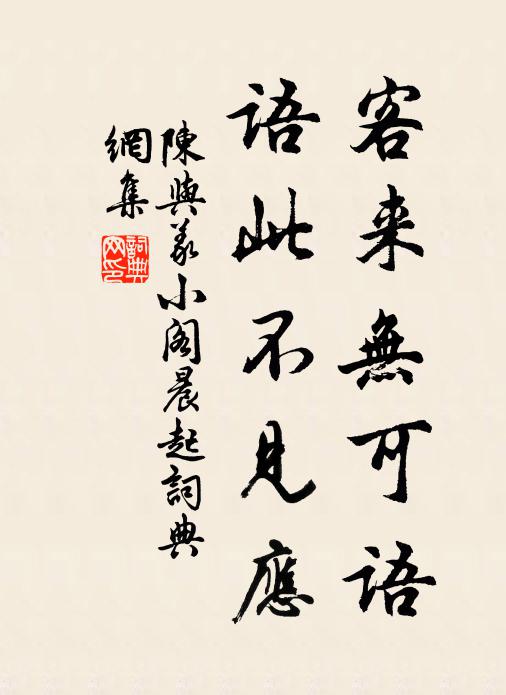 客来無可語
語此不見應
陳與義小阁晨起詞典
網集
詞典
网印